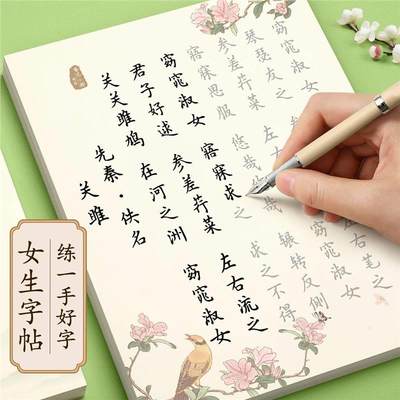 关雎
先秦·佚名
关关雎鸠
在河之洲
窈窕淑女
君子好逑
参差荇菜
左右流之
窈窕淑女
寤寐求之
求之不得
寤寐思服
悠哉
辗转反侧
参差荇菜
左右
窈窕淑女
琴瑟友之
左右之
窈窕淑女
练一手好字
女生字帖